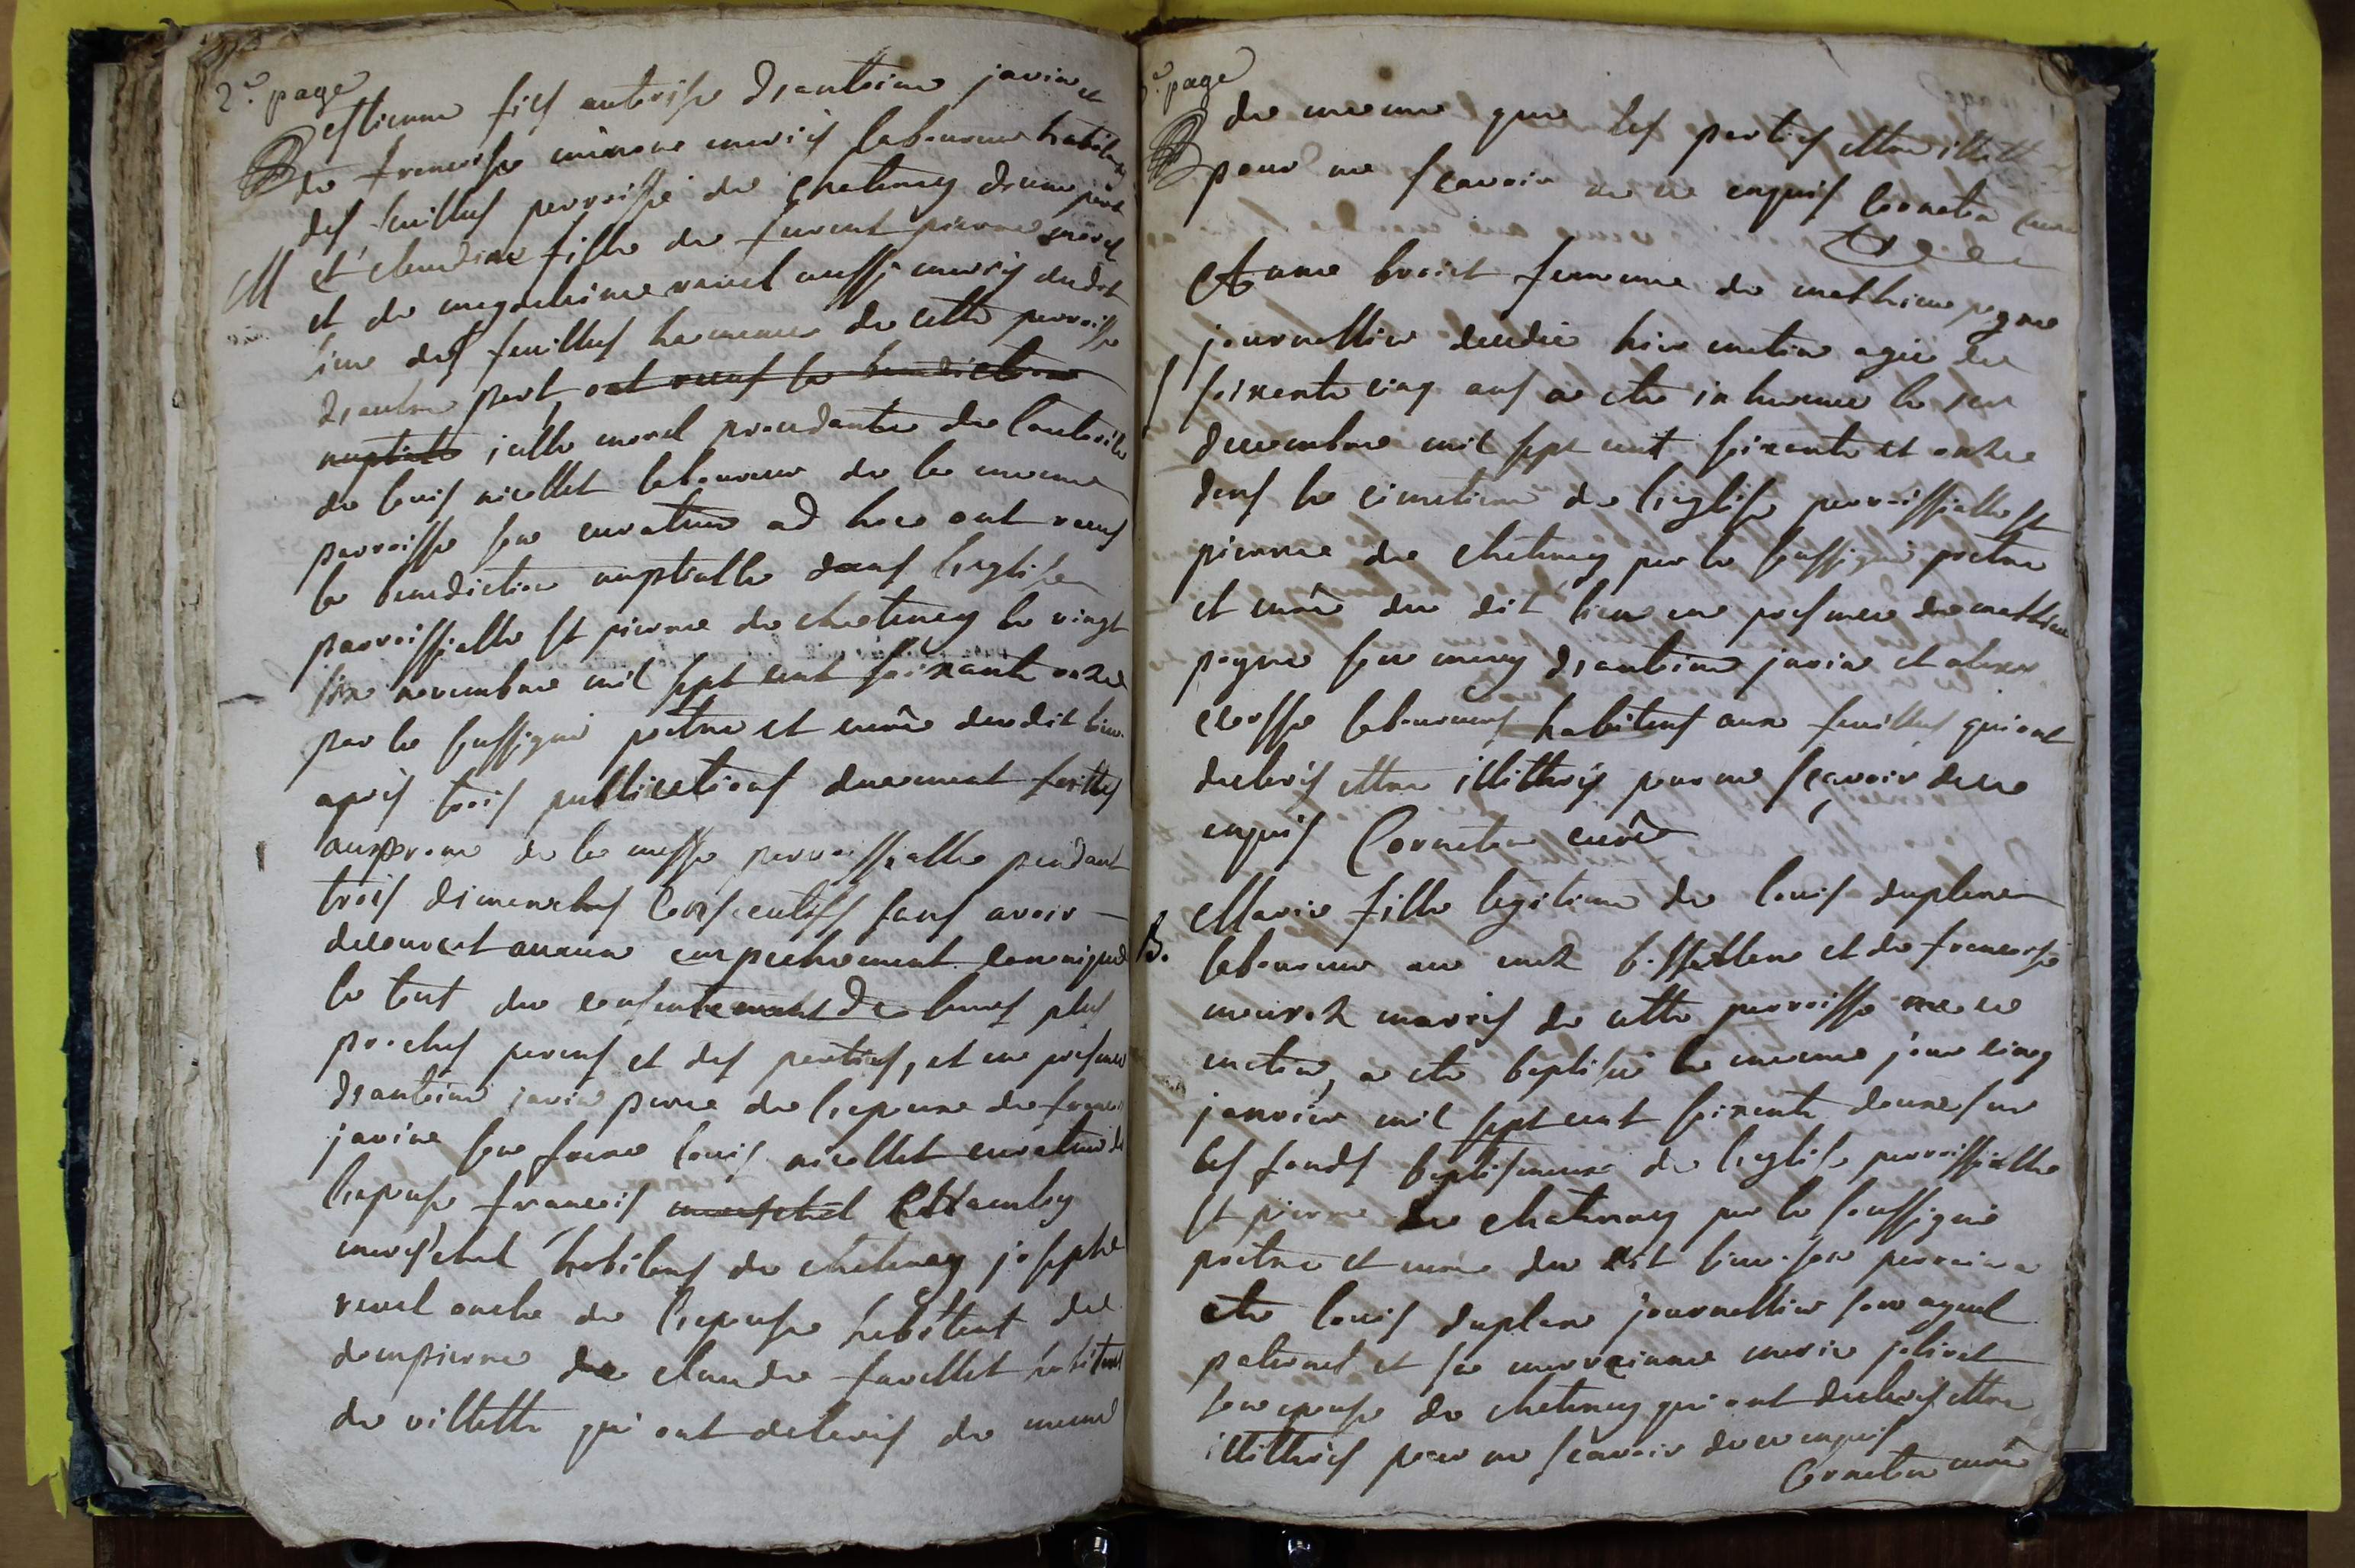 2e. page
estienne fils autorisé d'antoine javin et
de françoise mineue mariés laboureur habitans
des feuilles parroisse de chatenay d'une part
M et claudine fille de furent pierre morel
et de magdelaine ravel aussi mariés dudit
lieu des feuilles hameau de cette parroisse
d'autre part, ont receus la benediction
nuptiale icelle morel procedante de l'autorité
de louis nicollet laboureur de la meme
parroisse son curateur ad hoc ont receus
la benediction nuptialle dans l'eglise
parroissialle st pierre de chatenay le vingt
six novembre mil sept cent soixante onze
par le soussigné pretre et curé dudit lieu
après trois publications duement faittes
au prone de la messe parroissialle pendant
trois dimenches consecutifs sans avoir
decouvert aucun empechement canonique
le tout du consentement de leurs plus
proches parens et des parties, et en presence
d'antoine javin pere de l'epoux de françois
javin son frere louis nicollet curateur de
l'epouse françois mareschal Chamby
mareschal habitans de chatenay joseph
ravel oncle de l'epouse habitant de
dompierre de claude favellet habitant
de villette qui ont declarés de meme
3e. page
de meme que les parties ettre illitt
pour ne scavoir de ce enquis Cornaton curé
Anne broist femme de mathieu pagne
journallier decedée hier matin agée de
S soixante cinq ans a été inhumée le six
decembre mil sept cent soixante et onze
dans le cimetiere de l'eglise parroissialle st
pierre de chatenay par le soussigné pretre
et curé du dit lieu en presence de mathieu
pagne son mary d'antoine javin et
laboureurs habitans aux feuilles qui ont
declarés ettre illitterés pour ne sçavoir de ce
enquis Cornaton curé
Marie fille legitime de louis duplan
B. laboureur au et de françoise
mariés de cette parroisse née ce
matin, a été baptisée le meme jour cinq
janvier mil sept cent soixante douze sur
les fonds baptismaux de l'eglise parroissialle
st pierre de chatenay par le soussigné
pretre et curé du dit lieu. son parrain a
été louis duplan journallier son ayeul
paternel et sa marrainne marie joliret
son epouse de chatenay qui ont declarés ettre
illitterés pour ne scavoir de ce enquis
Cornaton curé